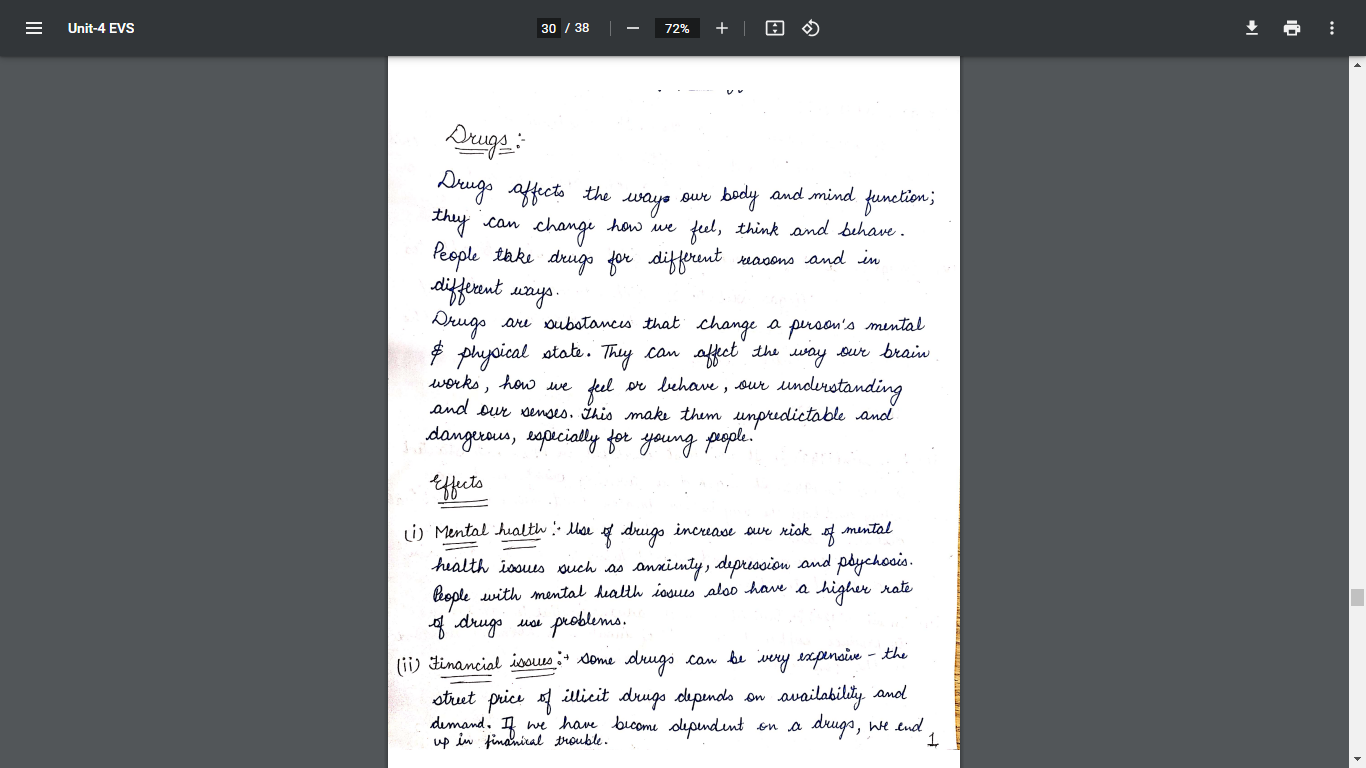 Unit-4 EVS
30 / 38
72%
Drugs :-
Drugs affects the way our body and mind function;
they can change how we feel, think and behave.
People take drugs for different reasons and in
different ways.
Drugs are substances that change a person's mental
& physical state. They can affect the way our brain
works, how we feel or behave, our understanding
and our senses. This make them unpredictable and
dangerous, especially for young people.
Effects
(i) Mental health :- Use of drugs increase our risk of mental
health issues such as anxienty, depression and pbychosis.
People with mental health issues also have a higher rate
of drugs use problems.
(ii) Financial issues :- some drugs can be very expensive - the
street price of illicit drugs depends on availability and
demand. If we have become dependent on a drugs, we end
up in finanical trouble.
1